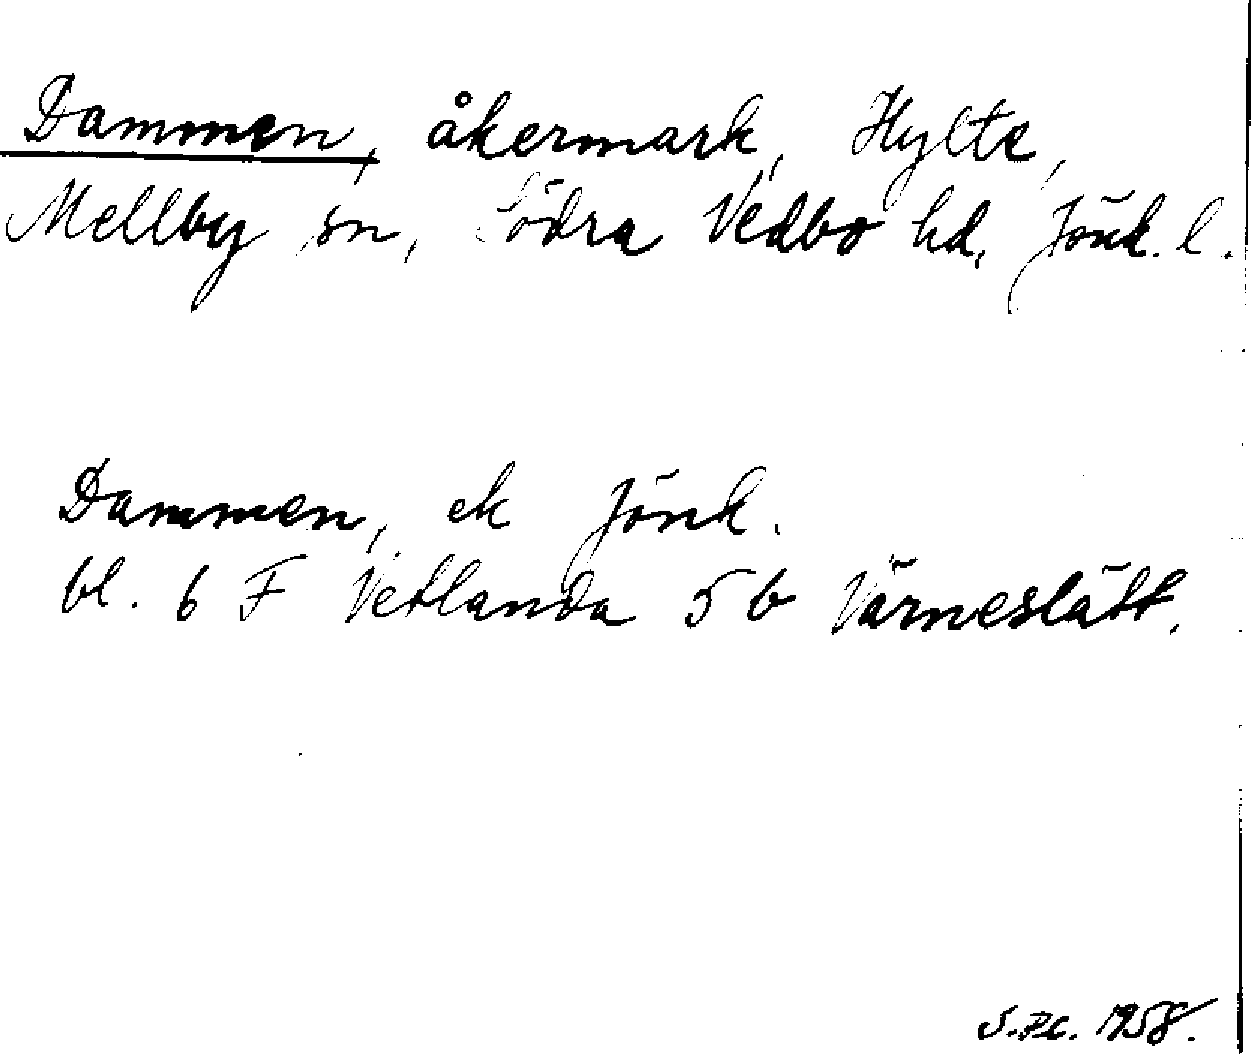 Dammen, åkermark, Hylte,
Mellby sn, Södra Vedbo hd, Jönk. l.
Dammen, ek Jönk.
bl. 6 F Vetlanda 5 b Värneslätt.
1958.